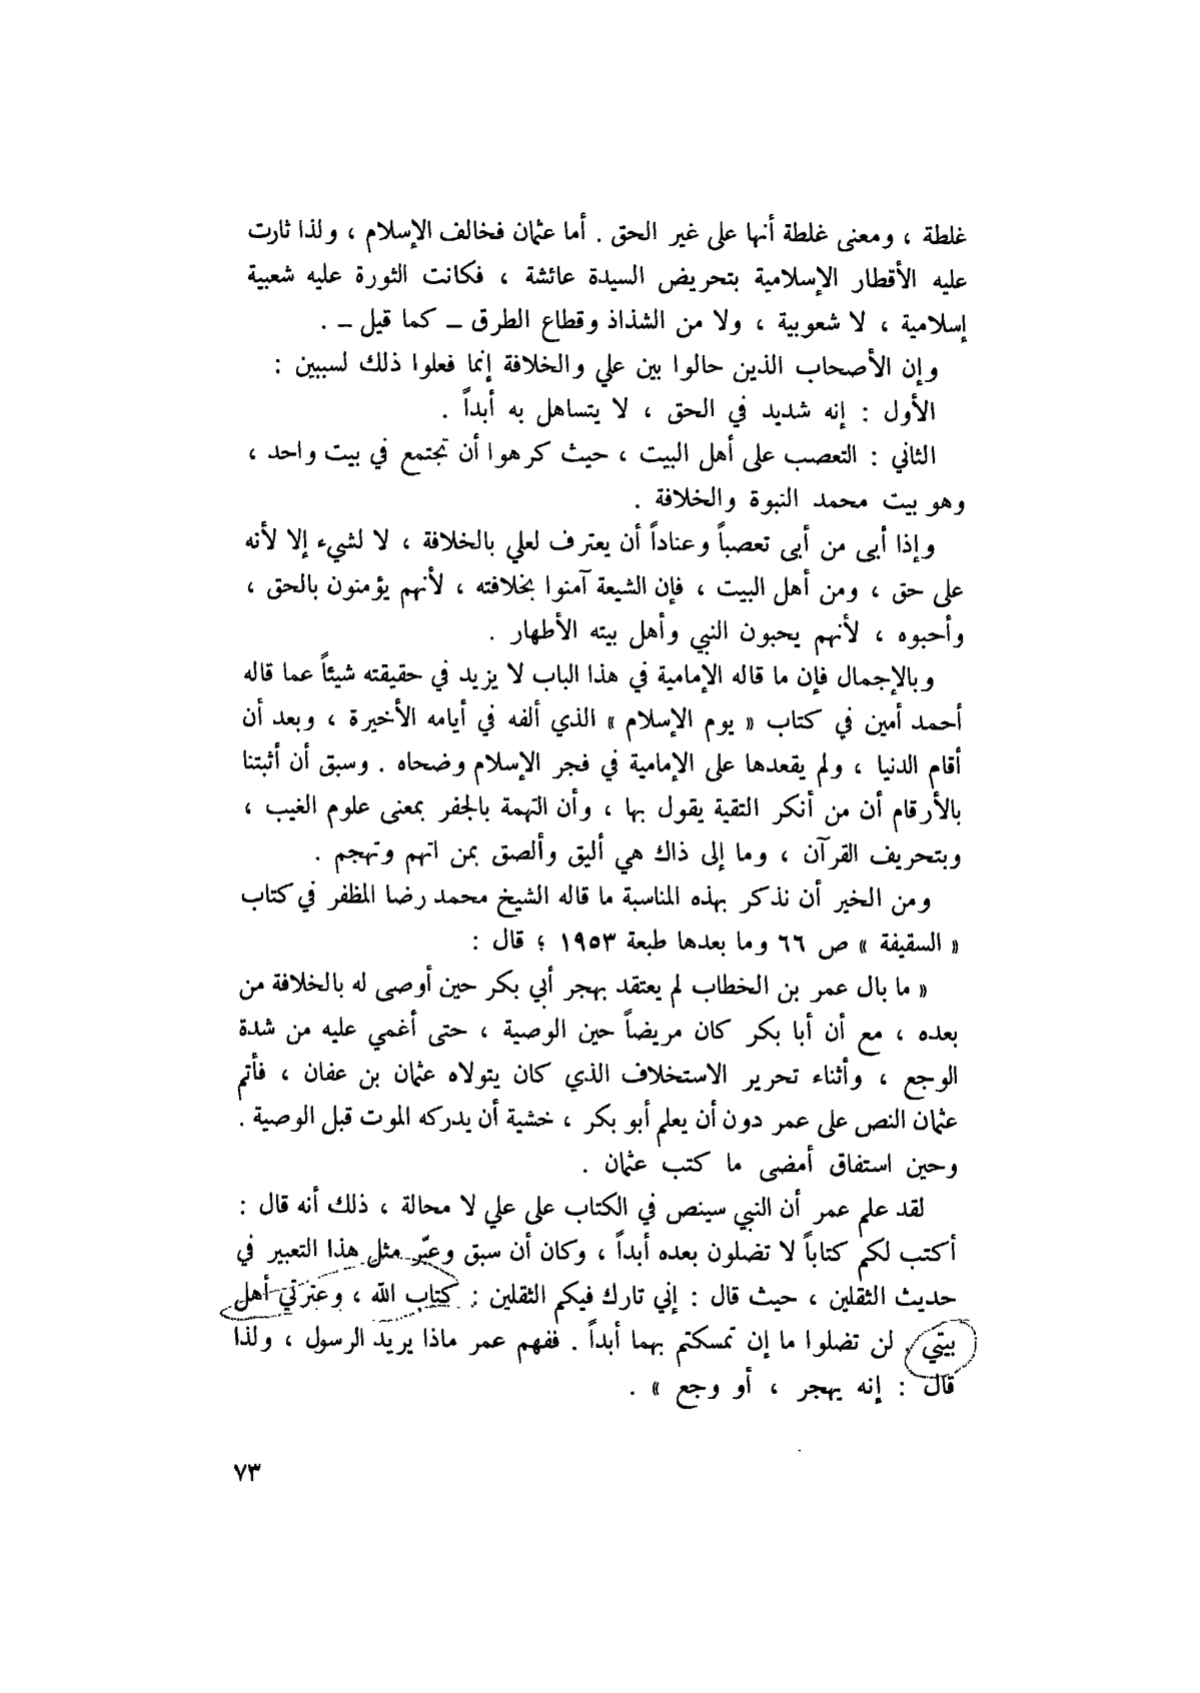 غلطة ، ومعنى غلطة أنها على غير الحق . أما عثمان فخالف الإسلام ، ولذا ثارت
عليه الأقطار الإسلامية بتحريض السيدة عائشة ، فكانت الثورة عليه شعبية
إسلامية ، لا شعوبية ، ولا من الشذاذ وقطاع الطرق – كما قيل – .
وإن الأصحاب الذين حالوا بين علي والخلافة إنما فعلوا ذلك لسببين :
الأول : إنه شديد في الحق ، لا يتساهل به أبداً .
الثاني : التعصب على أهل البيت ، حيث كرهوا أن تجتمع في بيت واحد ،
وهو بيت محمد النبوة والخلافة .
وإذا أبى من أبى تعصباً وعناداً أن يعترف لعلي بالخلافة ، لا لشيء إلا لأنه
على حق ، ومن أهل البيت ، فإن الشيعة آمنوا بخلافته ، لأنهم يؤمنون بالحق ،
وأحبوه ، لأنهم يحبون النبي وأهل بيته الأطهار .
وبالإجمال فإن ما قاله الإمامية في هذا الباب لا يزيد في حقيقته شيئاً عما قاله
أحمد أمين في كتاب « يوم الإسلام » الذي ألفه في أيامه الأخيرة ، وبعد أن
أقام الدنيا ، ولم يقعدها على الإمامية في فجر الإسلام وضحاه . وسبق أن أثبتنا
بالأرقام أن من أنكر التقية يقول بها ، وأن التهمة بالجفر بمعنى علوم الغيب ،
وبتحريف القرآن ، وما إلى ذاك هي أليق وألصق بمن اتهم وتهجم .
ومن الخير أن نذكر بهذه المناسبة ما قاله الشيخ محمد رضا المظفر في كتاب
« السقيفة » ص ٦٦ وما بعدها طبعة ١٩٥٣ ؛ قال :
« ما بال عمر بن الخطاب لم يعتقد بهجر أبي بكر حين أوصى له بالخلافة من
بعده ، مع أن أبا بكر كان مريضاً حين الوصية ، حتى أغمي عليه من شدة
الوجع ، وأثناء تحرير الاستخلاف الذي كان يتولاه عثمان بن عفان ، فأتم
عثمان النص على عمر دون أن يعلم أبو بكر ، خشية أن يدركه الموت قبل الوصية .
وحين استفاق أمضى ما كتب عثمان .
لقد علم عمر أن النبي سينص في الكتاب على علي لا محالة ، ذلك أنه قال :
أكتب لكم كتاباً لا تضلون بعده أبداً ، وكان أن سبق وعبّر مثل هذا التعبير في
حديث الثقلين ، حيث قال : إني تارك فيكم الثقلين : كتاب الله ، وعترتي أهل
بيتي . لن تضلوا ما إن تمسكتم بهما أبداً . ففهم عمر ماذا يريد الرسول ، ولذا
قال : إنه يهجر ، أو وجع » .
٧٣